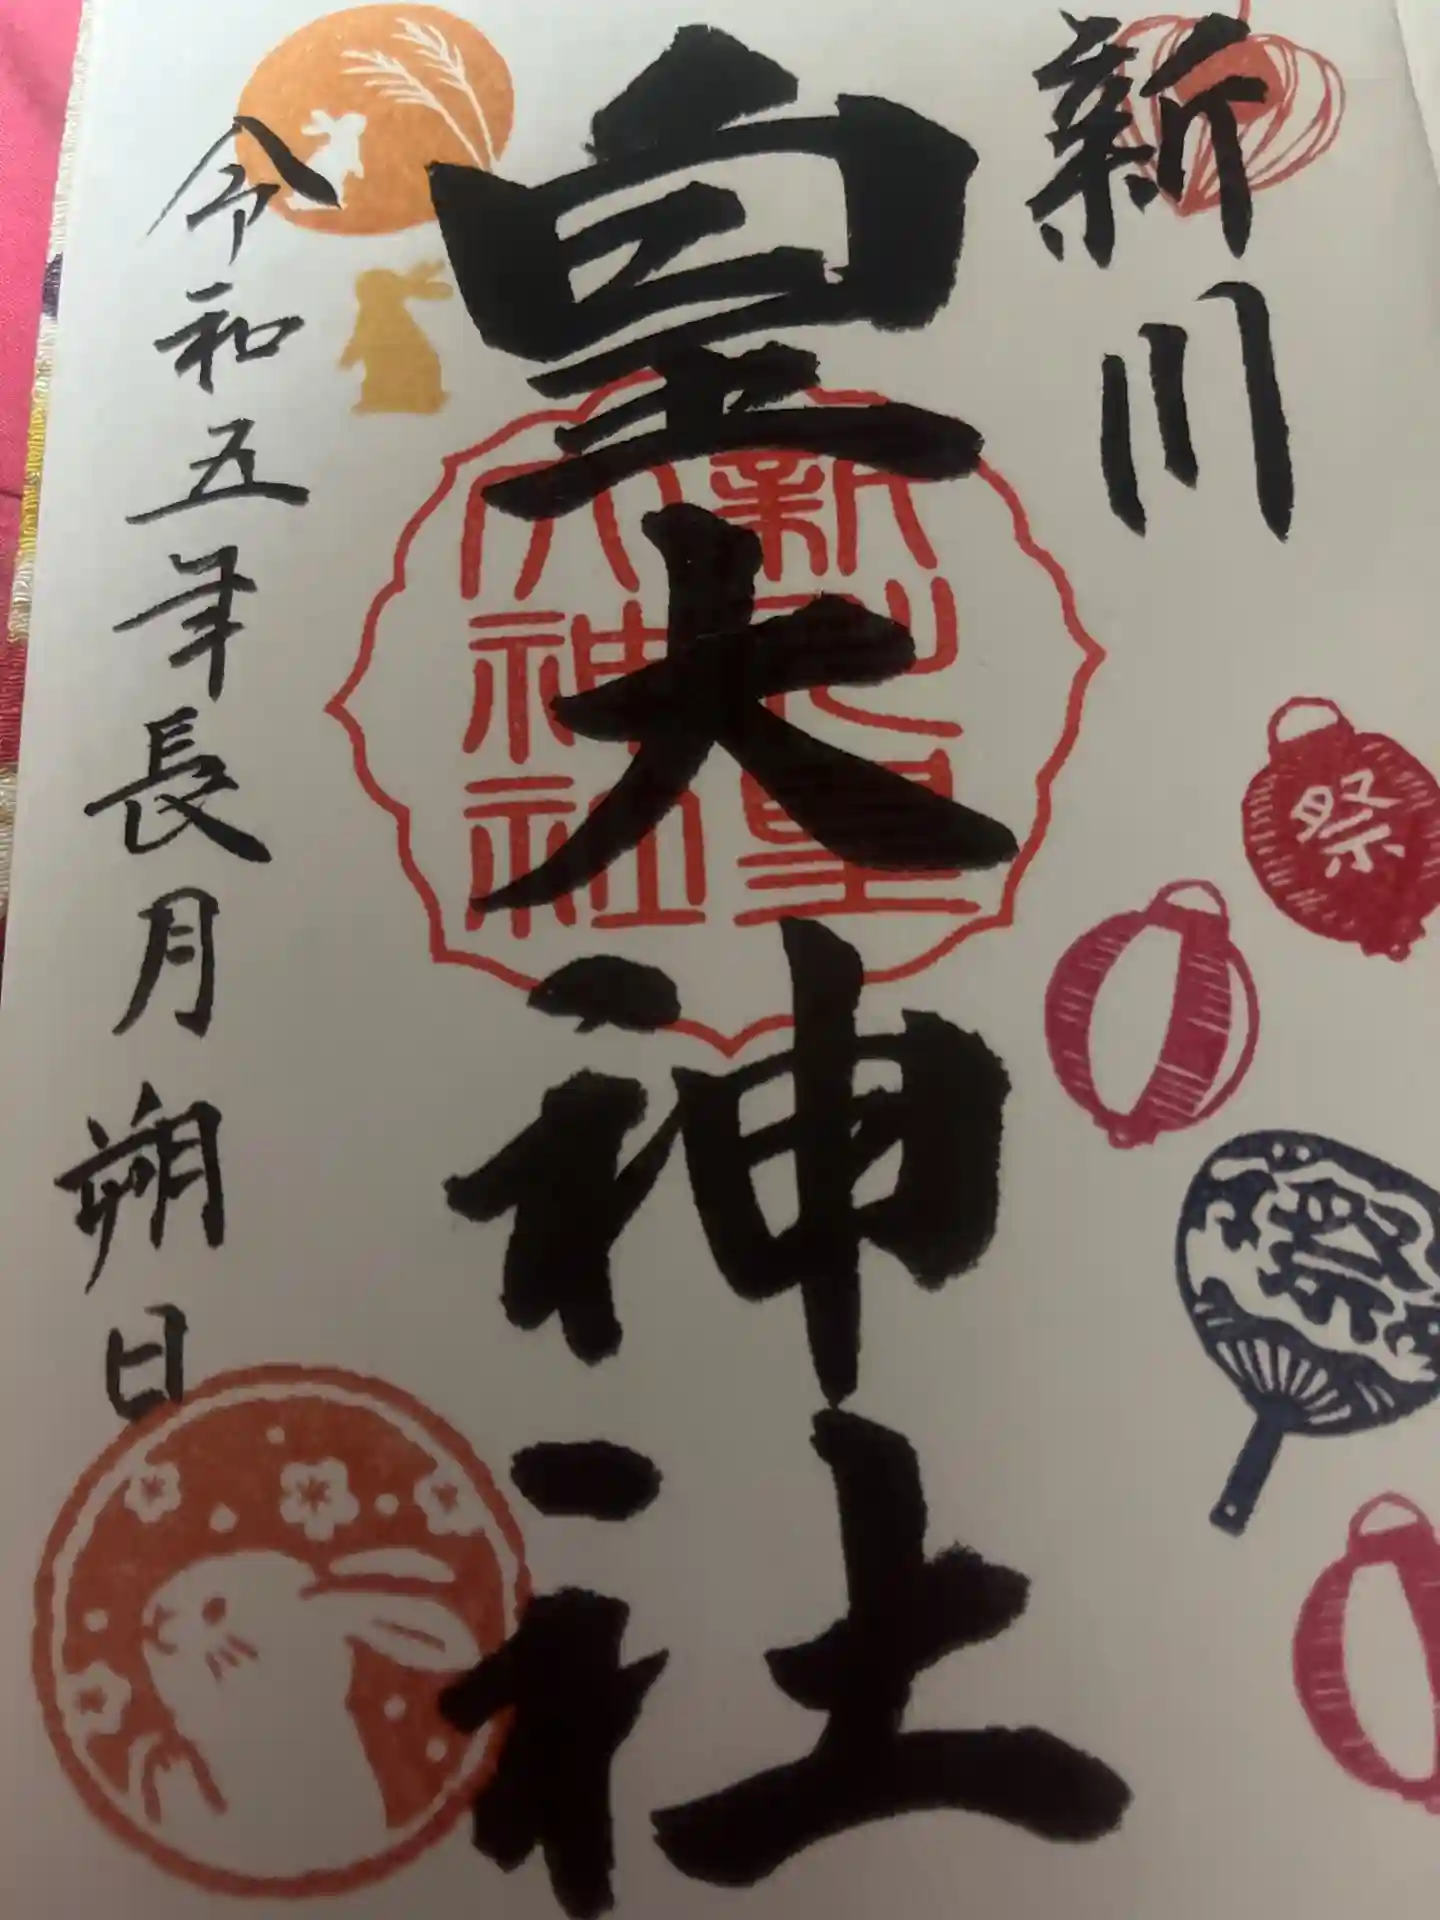 新川
皇大神社
令和五年長月朔日
新川皇
大神社
祭
祭